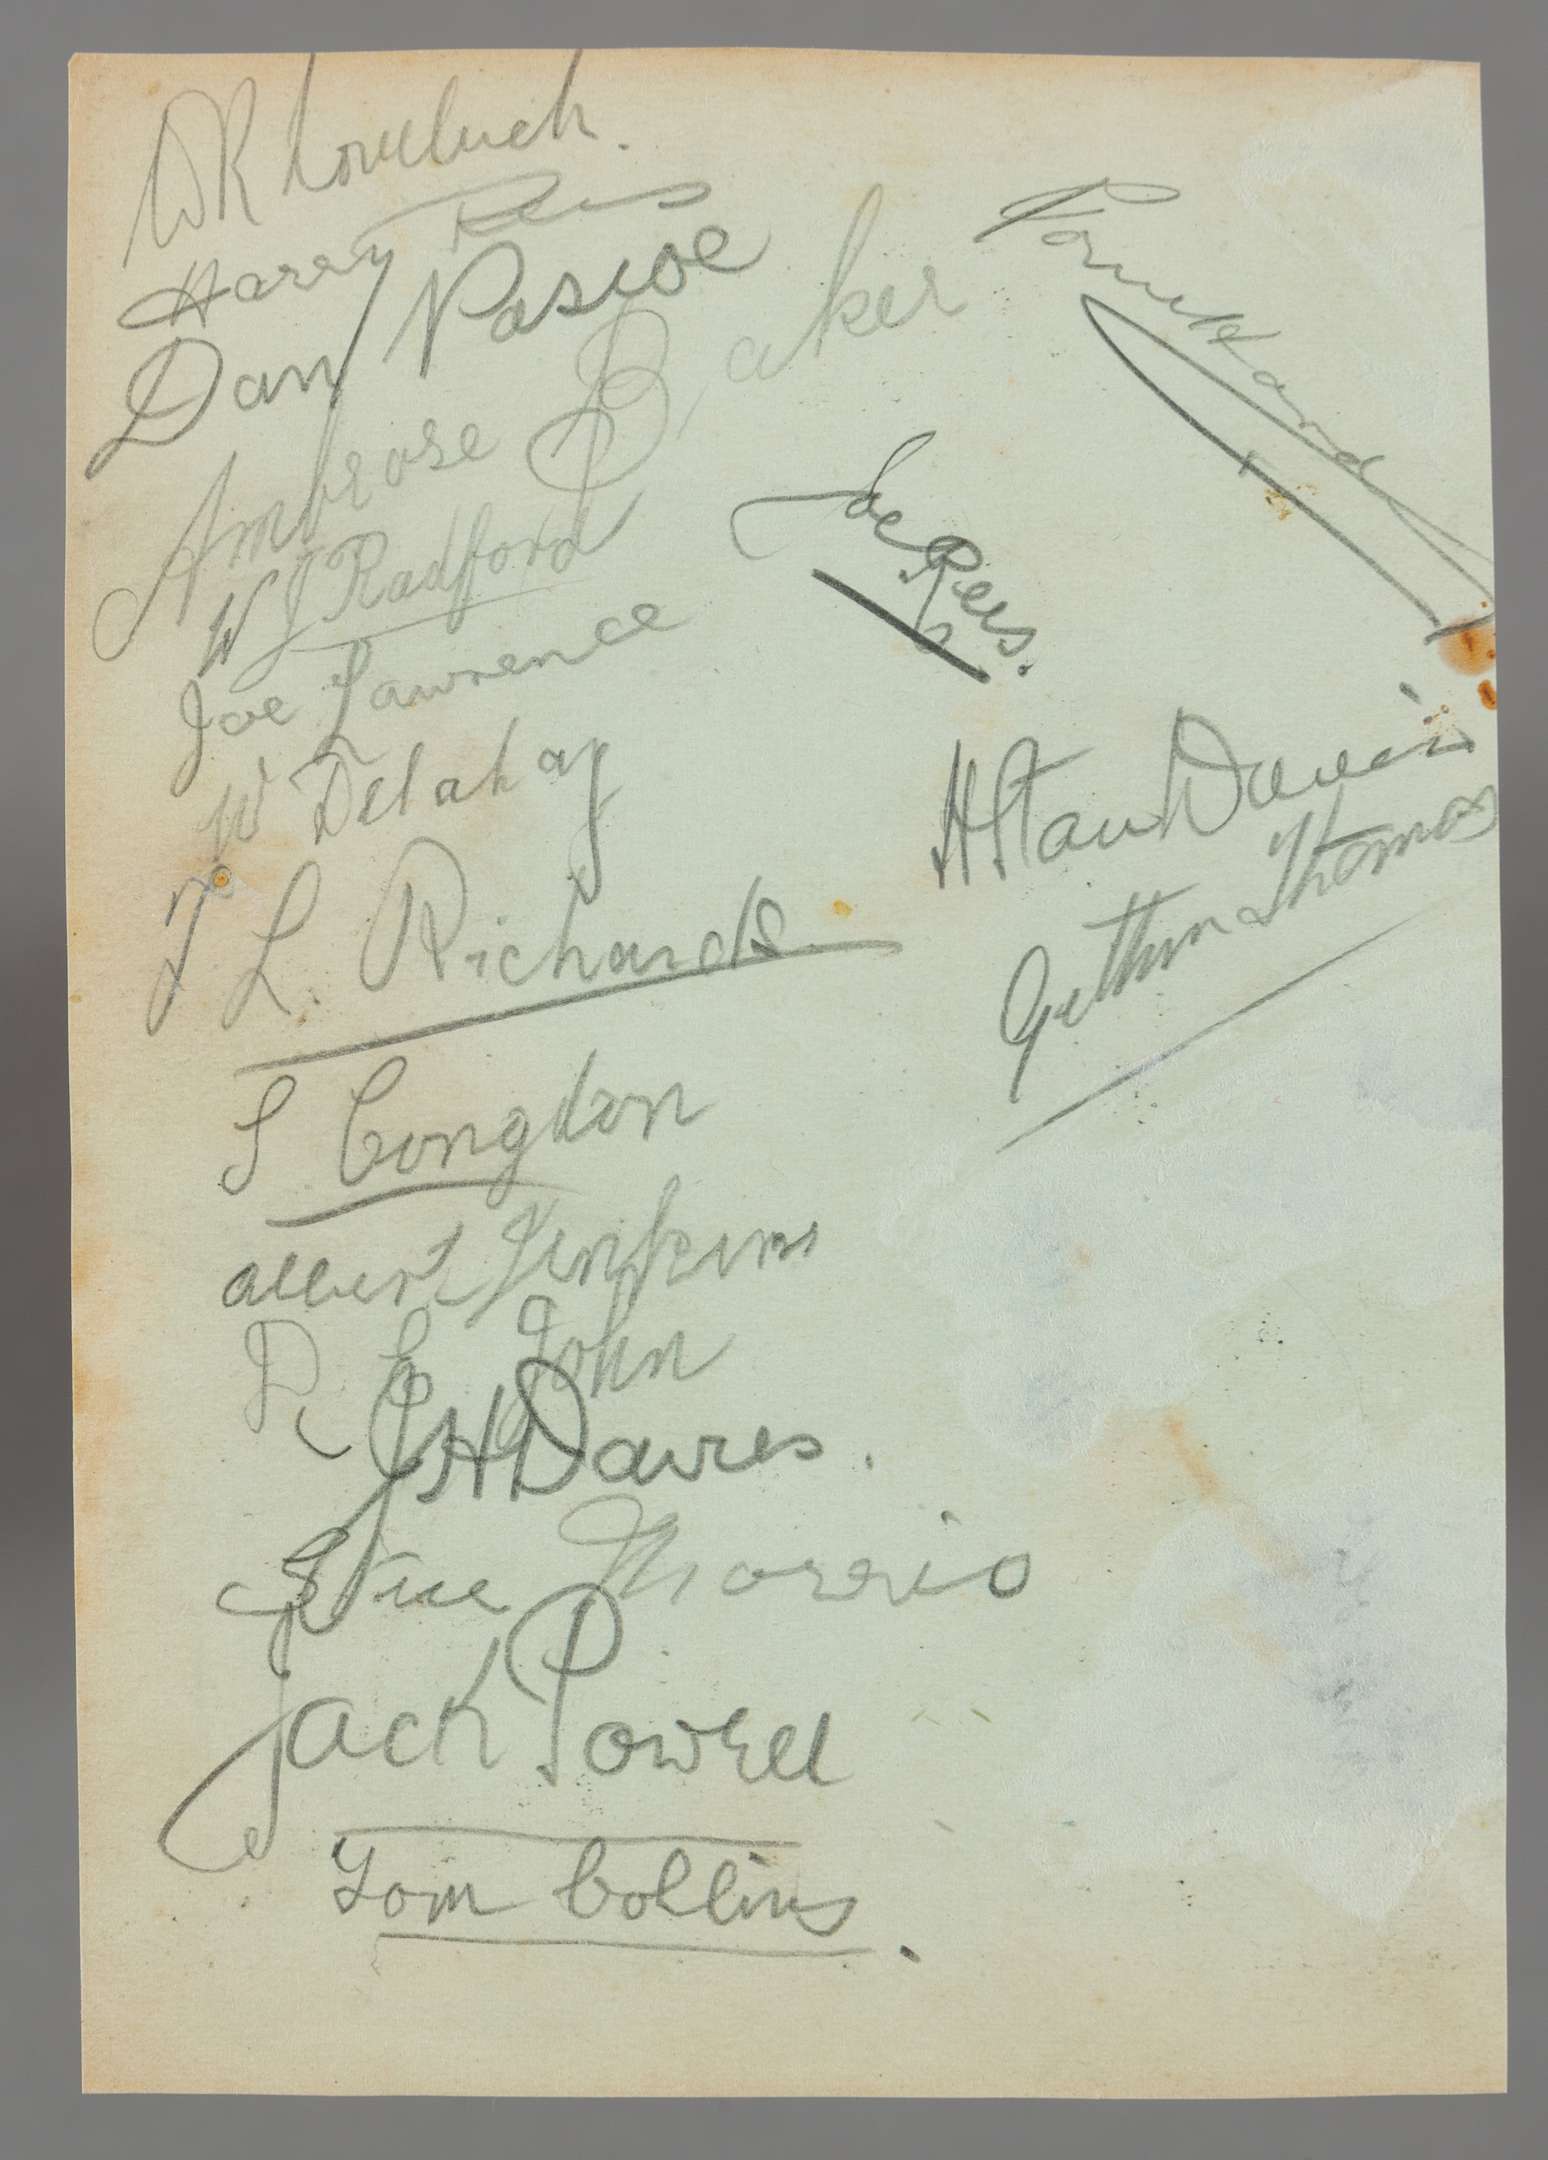 WR Loveluck.
Harry Rees
Dan Pascoe
Ambrose Baker
W J Radford
Joe Lawrence
W Delahay
T L. Richards
S Congdon
Albert Jenkins
D. E John
J H Davies.
Steve Morris
Jack Powell
Tom Collins.
Joe. Rees.
H Stan Davies
Gethin Thomas